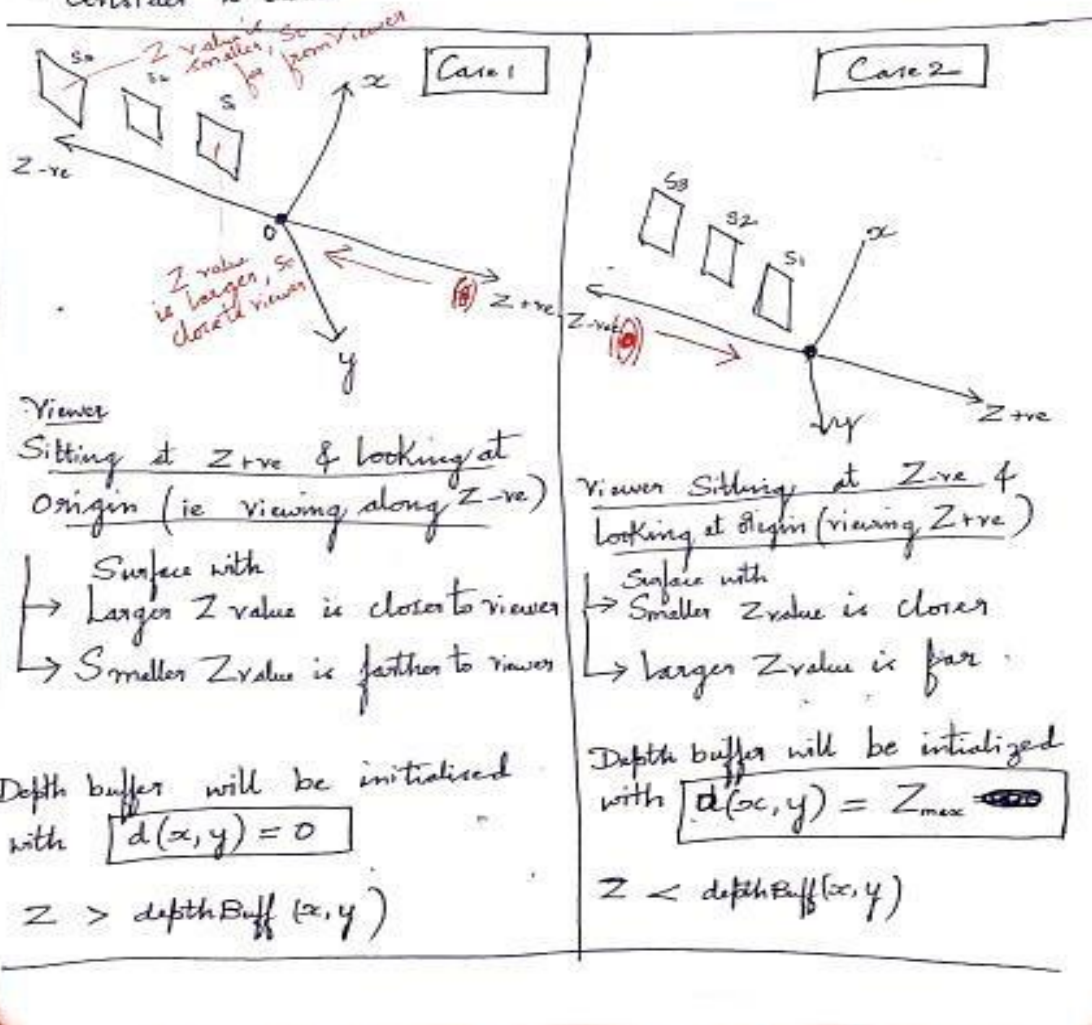 Consider
Z value is
smaller, So
far from viewer
S3
S2
S1
x
Case 1
Z -ve
O
Z value
is larger, So
close to viewer
Z +ve
y
Viewer
Sitting at Z+ve & Looking at
Origin (ie viewing along Z-ve)
Surface with
→ Larger Z value is closer to viewer
→ Smaller Z value is farther to viewer
Depth buffer will be initialised
with d(x,y) = 0
Z > depthBuff (x,y)
Case 2
S3
S2
S1
x
Z -ve
Z +ve
y
Viewer Sitting at Z-ve &
Looking at Origin (viewing Z+ve)
Surface with
→ Smaller Z value is closer
→ Larger Z value is far.
Depth buffer will be intialized
with d(x,y) = Zmax
Z < depthBuff(x,y)